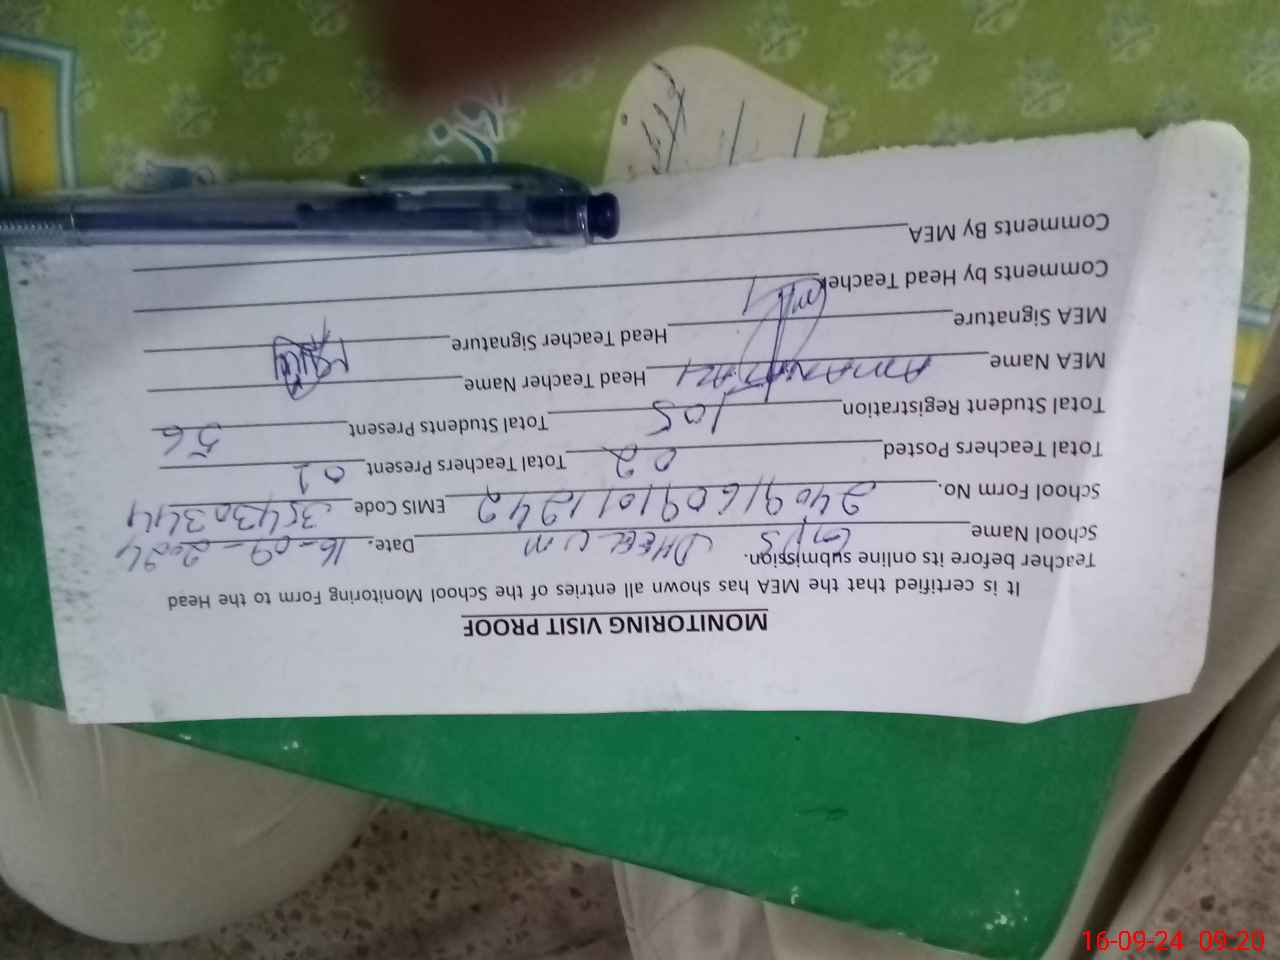 MONITORING VISIT PROOF
It is certified that the MEA has shown all entries of the School Monitoring Form to the Head
Teacher before its online submission.
School Name GPS DHEELUM Date. 16-09-2024
School Form No. 240916091011242 EMIS Code 35430344
Total Teachers Posted 02 Total Teachers Present 01
Total Student Registration 105 Total Students Present 56
MEA Name Head Teacher Name
MEA Signature Head Teacher Signature
Comments by Head Teacher
Comments By MEA
16-09-24 09:20